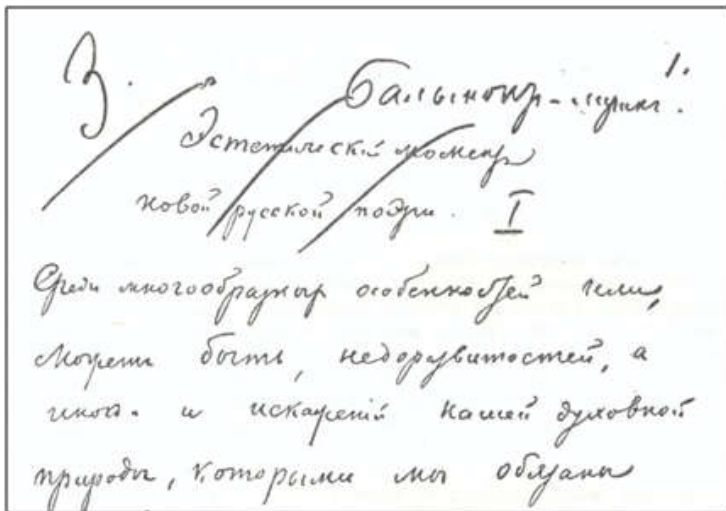 3.
1.
Бальмонт-лирик.
Эстетический момент
новой русской поэзии. I
Среди многообразных особенностей или,
может быть, недоразвитостей, а
иногд. и искажений нашей духовной
природы, которыми мы обязаны